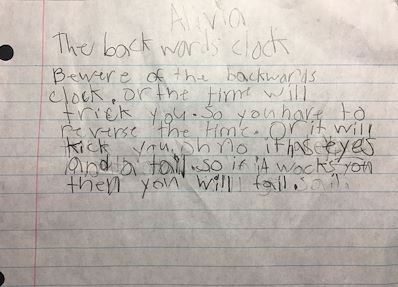 Alivia
The back wards clock
Beware of the backwards
clock. or the time will
trick you. So you have to
reverse the time. Or it will
kick you. oh no it has eyes
and a tail. so if it wacks you
then you will fall.